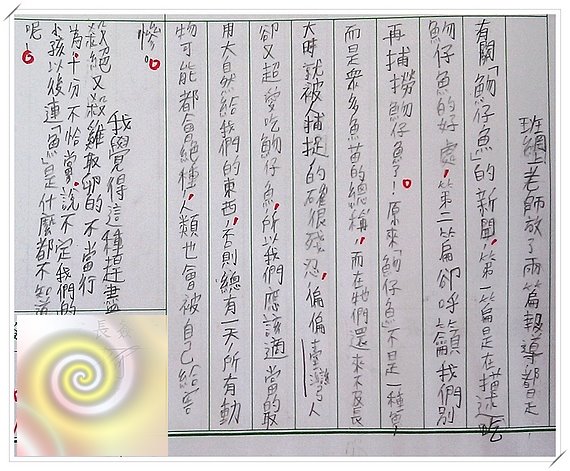 班網上老師放了兩篇報導都是
有關「魩仔魚」的新聞,第一篇是在描述吃
魩仔魚的好處,第二篇卻呼籲我們別
再捕撈魩仔魚了!原來魩仔魚不是一種魚
而是眾多魚苗的總稱,而在牠們還來不及長
大時就被捕捉的確很殘忍,偏偏臺灣人
卻又超愛吃魩仔魚,所以我們應該適當的取
用大自然給我們的東西,否則總有一天,所有動
物可能都會絕種,人類也會被自己給害
慘。
我覺得這種趕盡
殺絕又殺雞取卵的不當行
為,十分不恰當,說不定我們的
小孩以後連「魚」是什麼都不知道
呢。